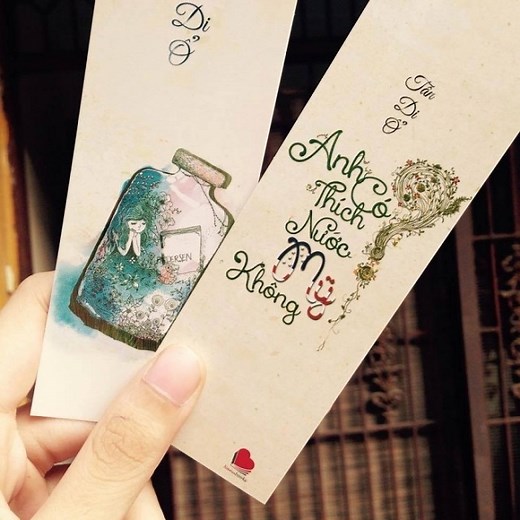 Di
Ổ
ERSEN
Tân
Di
Ổ
Anh Có
Thích
Nước
Mỹ
Không